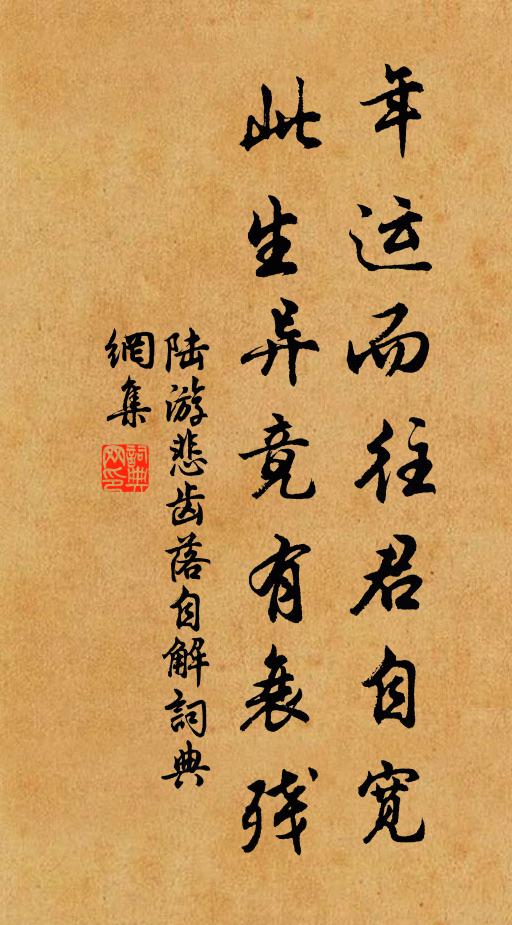 年运而往君自宽
此生异竟有衰残
陆游悲齿落自解詞典
網集
詞典
网印